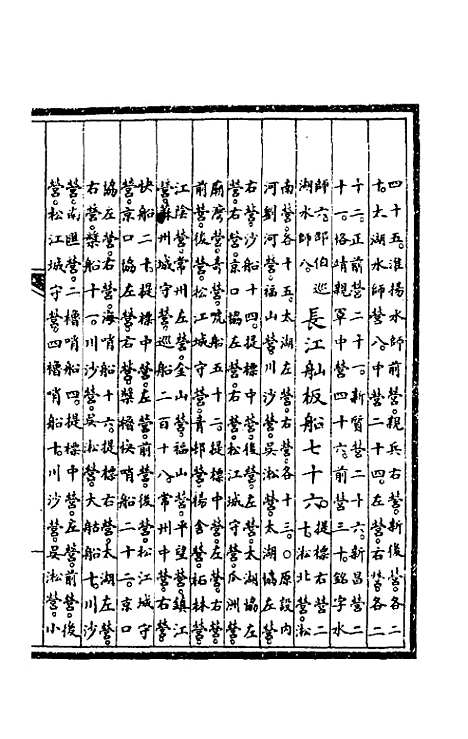 四十五。淮揚水師前營。親兵右營。新後營。各二
十。太湖水師營。八。中營二十四。左營。右營。各二
十二。正前營二十一。新質營二十六。新昌營二
十一。恪靖親軍中營四十六。前營三十。銘字水
師六。邵伯巡
湖水師八。
長江舢板船七十六
提標右營二
十。淞北營。淞
南營各十五。太湖左營。右營。各十三。○原設內
河劉河營。福山營。川沙營。吳淞營。太湖協左營。
右營。沙船十四。提標中營。後營。左營。太湖協左
營。右營。京口協左營。右營。松江城守營。瓜洲營。
廟灣營。奇營。唬船五十二。提標中營。左營。右營。
前營。後營。松江城守營。青邨營。楊舍營。柘林營。
江陰營。常州左營。金山營。福山營。平望營。鎮江
營。蘇州城守營。巡船二百十八。常州中營。右營。
快船二十。提標中營。左營。前營。後營。松江城守
營。京口協左營。右營。槳櫓快哨船二十二。京口
協左營。右營。海哨船十六。提標右營。太湖左營。
右營。槳船十一。川沙營。吳淞營。大船七。川沙
營。南匯營。二櫓哨船四。提標中營。左營。前營。後
營。松江城守營。四櫓哨船七。川沙營。吳淞營。小